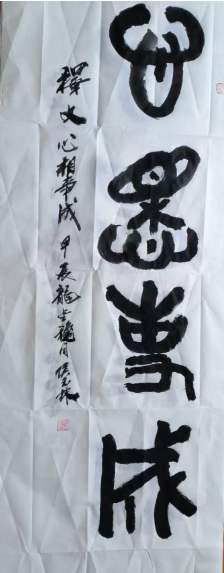 心想事成
釋文心想事成 甲辰龍年龍月